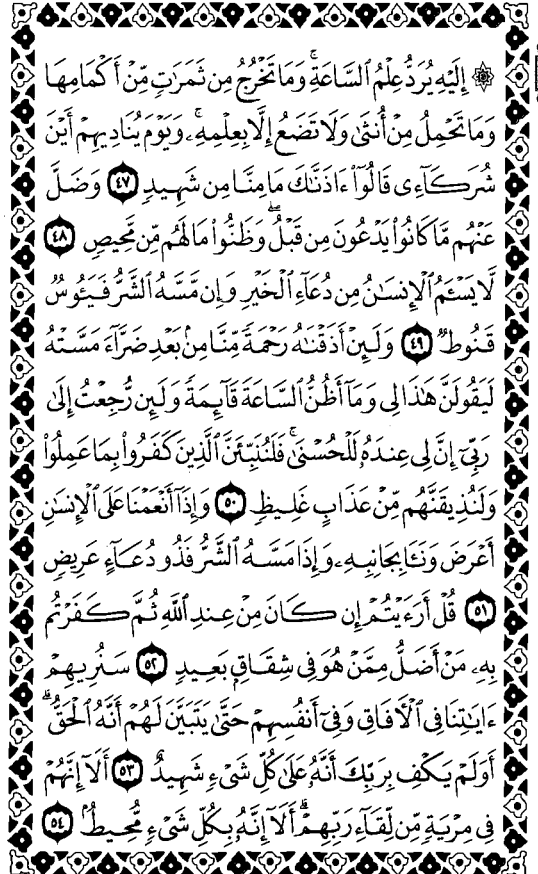 ۞ إِلَيْهِ يُرَدُّ عِلْمُ ٱلسَّاعَةِ ۚ وَمَا تَخْرُجُ مِن ثَمَرَٰتٍ مِّنْ أَكْمَامِهَا
وَمَا تَحْمِلُ مِنْ أُنثَىٰ وَلَا تَضَعُ إِلَّا بِعِلْمِهِۦ ۚ وَيَوْمَ يُنَادِيهِمْ أَيْنَ
شُرَكَآءِى قَالُوٓا۟ ءَاذَنَّٰكَ مَا مِنَّا مِن شَهِيدٍ ٤٧ وَضَلَّ
عَنْهُم مَّا كَانُوا۟ يَدْعُونَ مِن قَبْلُ ۖ وَظَنُّوا۟ مَا لَهُم مِّن مَّحِيصٍ ٤٨
لَّا يَسْـَٔمُ ٱلْإِنسَٰنُ مِن دُعَآءِ ٱلْخَيْرِ وَإِن مَّسَّهُ ٱلشَّرُّ فَيَـُٔوسٌ
قَنُوطٌ ٤٩ وَلَئِنْ أَذَقْنَٰهُ رَحْمَةً مِّنَّا مِنۢ بَعْدِ ضَرَّآءَ مَسَّتْهُ
لَيَقُولَنَّ هَٰذَا لِى وَمَآ أَظُنُّ ٱلسَّاعَةَ قَآئِمَةً وَلَئِن رُّجِعْتُ إِلَىٰ
رَبِّىٓ إِنَّ لِى عِندَهُۥ لَلْحُسْنَىٰ ۚ فَلَنُنَبِّئَنَّ ٱلَّذِينَ كَفَرُوا۟ بِمَا عَمِلُوا۟
وَلَنُذِيقَنَّهُم مِّنْ عَذَابٍ غَلِيظٍ ٥٠ وَإِذَآ أَنْعَمْنَا عَلَى ٱلْإِنسَٰنِ
أَعْرَضَ وَنَـَٔا بِجَانِبِهِۦ وَإِذَا مَسَّهُ ٱلشَّرُّ فَذُو دُعَآءٍ عَرِيضٍ
٥١ قُلْ أَرَءَيْتُمْ إِن كَانَ مِنْ عِندِ ٱللَّهِ ثُمَّ كَفَرْتُم
بِهِۦ مَنْ أَضَلُّ مِمَّنْ هُوَ فِى شِقَاقٍۭ بَعِيدٍ ٥٢ سَنُرِيهِمْ
ءَايَٰتِنَا فِى ٱلْـَٔافَاقِ وَفِىٓ أَنفُسِهِمْ حَتَّىٰ يَتَبَيَّنَ لَهُمْ أَنَّهُ ٱلْحَقُّ ۗ
أَوَلَمْ يَكْفِ بِرَبِّكَ أَنَّهُۥ عَلَىٰ كُلِّ شَىْءٍ شَهِيدٌ ٥٣ أَلَآ إِنَّهُمْ
فِى مِرْيَةٍ مِّن لِّقَآءِ رَبِّهِمْ ۗ أَلَآ إِنَّهُۥ بِكُلِّ شَىْءٍ مُّحِيطٌۢ ٥٤